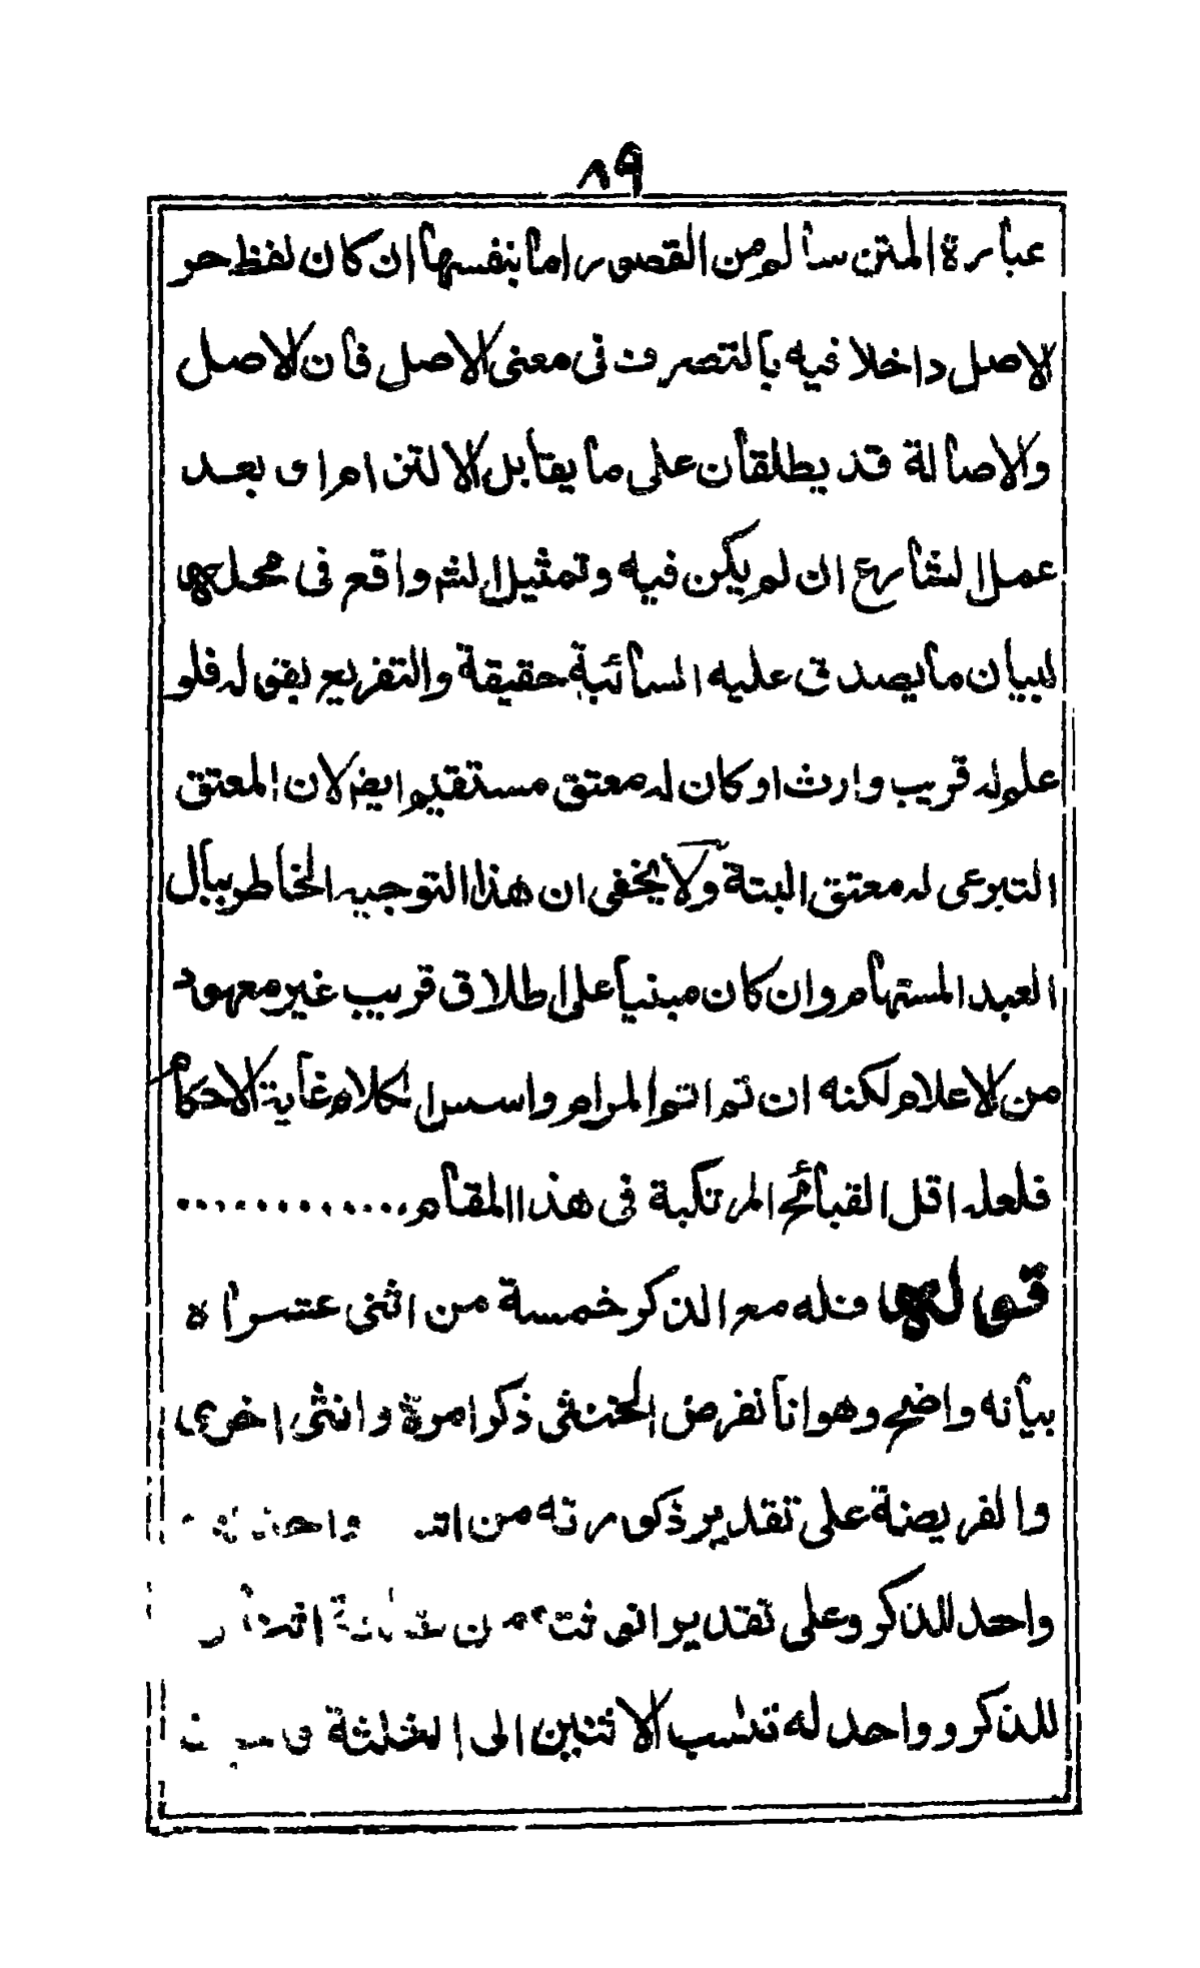 ٨٩
عبارة المتن سالم من القصور اما بنفسها ان كان لفظ حر
الاصل داخلا فيه بالتصرف فى معنى الاصل فان الاصل
والاصالة قد يطلقان على ما يقابل الا لتزام اى بعد
عمل الشارع ان لم يكن فيه وتمثيل الشم واقع فى محلها
لبيان ما يصدق عليه السائبة حقيقة والتفريع بقوله فلو
علم له قريب وارث او كان له معتق مستقيم ايضا لان المعتق
التبرعى له معتق البتة ولا يخفى ان هذا التوجيه الخاطر ببال
العبد المستهام وان كان مبنيا على اطلاق قريب غير معهود
من الاعلام لكنه ان تم اتم المرام واسس الكلام غاية الاحكام
فلعله اقل القبائح المرتكبة فى هذا المقام............
قولها فله مع الذكر خمسة من اثنى عشر اه
بيانه واضح وهو انا نفرض الخنثى ذكرا مرة وانثى اخرى
والفريضة على تقدير ذكورته من اثنين واحد له
واحد للذكر وعلى تقدير انوثته من ثلاثة اثنان
للذكر وواحد له تناسب الاثنين الى الثلثة